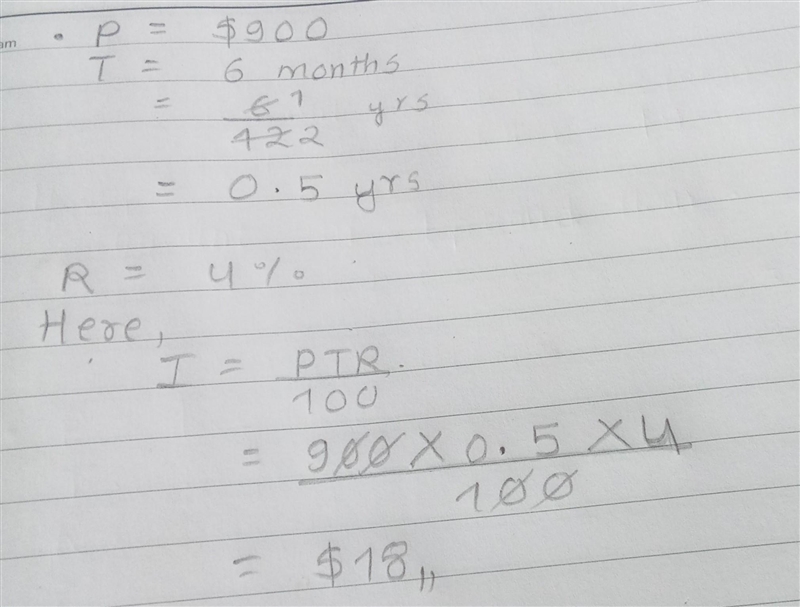 am
• P = $900
T = 6 months
= 6 1 / 12 2 yrs
= 0.5 yrs
R = 4%
Here,
I = PTR / 100
= 900 × 0.5 × 4 / 100
= $18,,